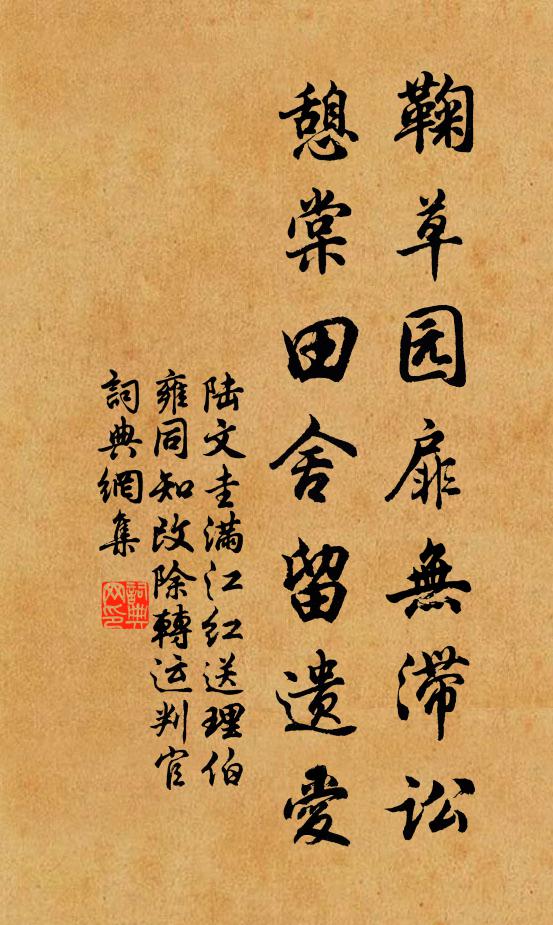 鞠草园扉無滞訟
憩棠田舍留遺愛
陆文圭滿江红送理伯
雍同知改除轉运判官
詞典網集
詞典
网印